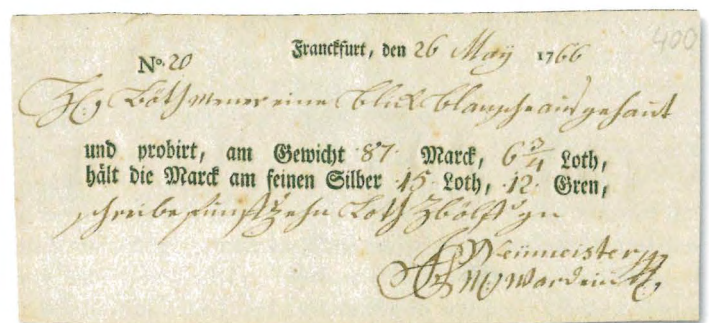 400
Franckfurt, den 26 May 1766
No. 20
eine blick ausgehaut
und probirt, am Gewicht 87 Marck, 6 3/4 Loth,
hält die Marck am feinen Silber 15 Loth, 12 Gren,
schreibe fünffzehn Loth Zbölff gn
Neumeister
Wardein